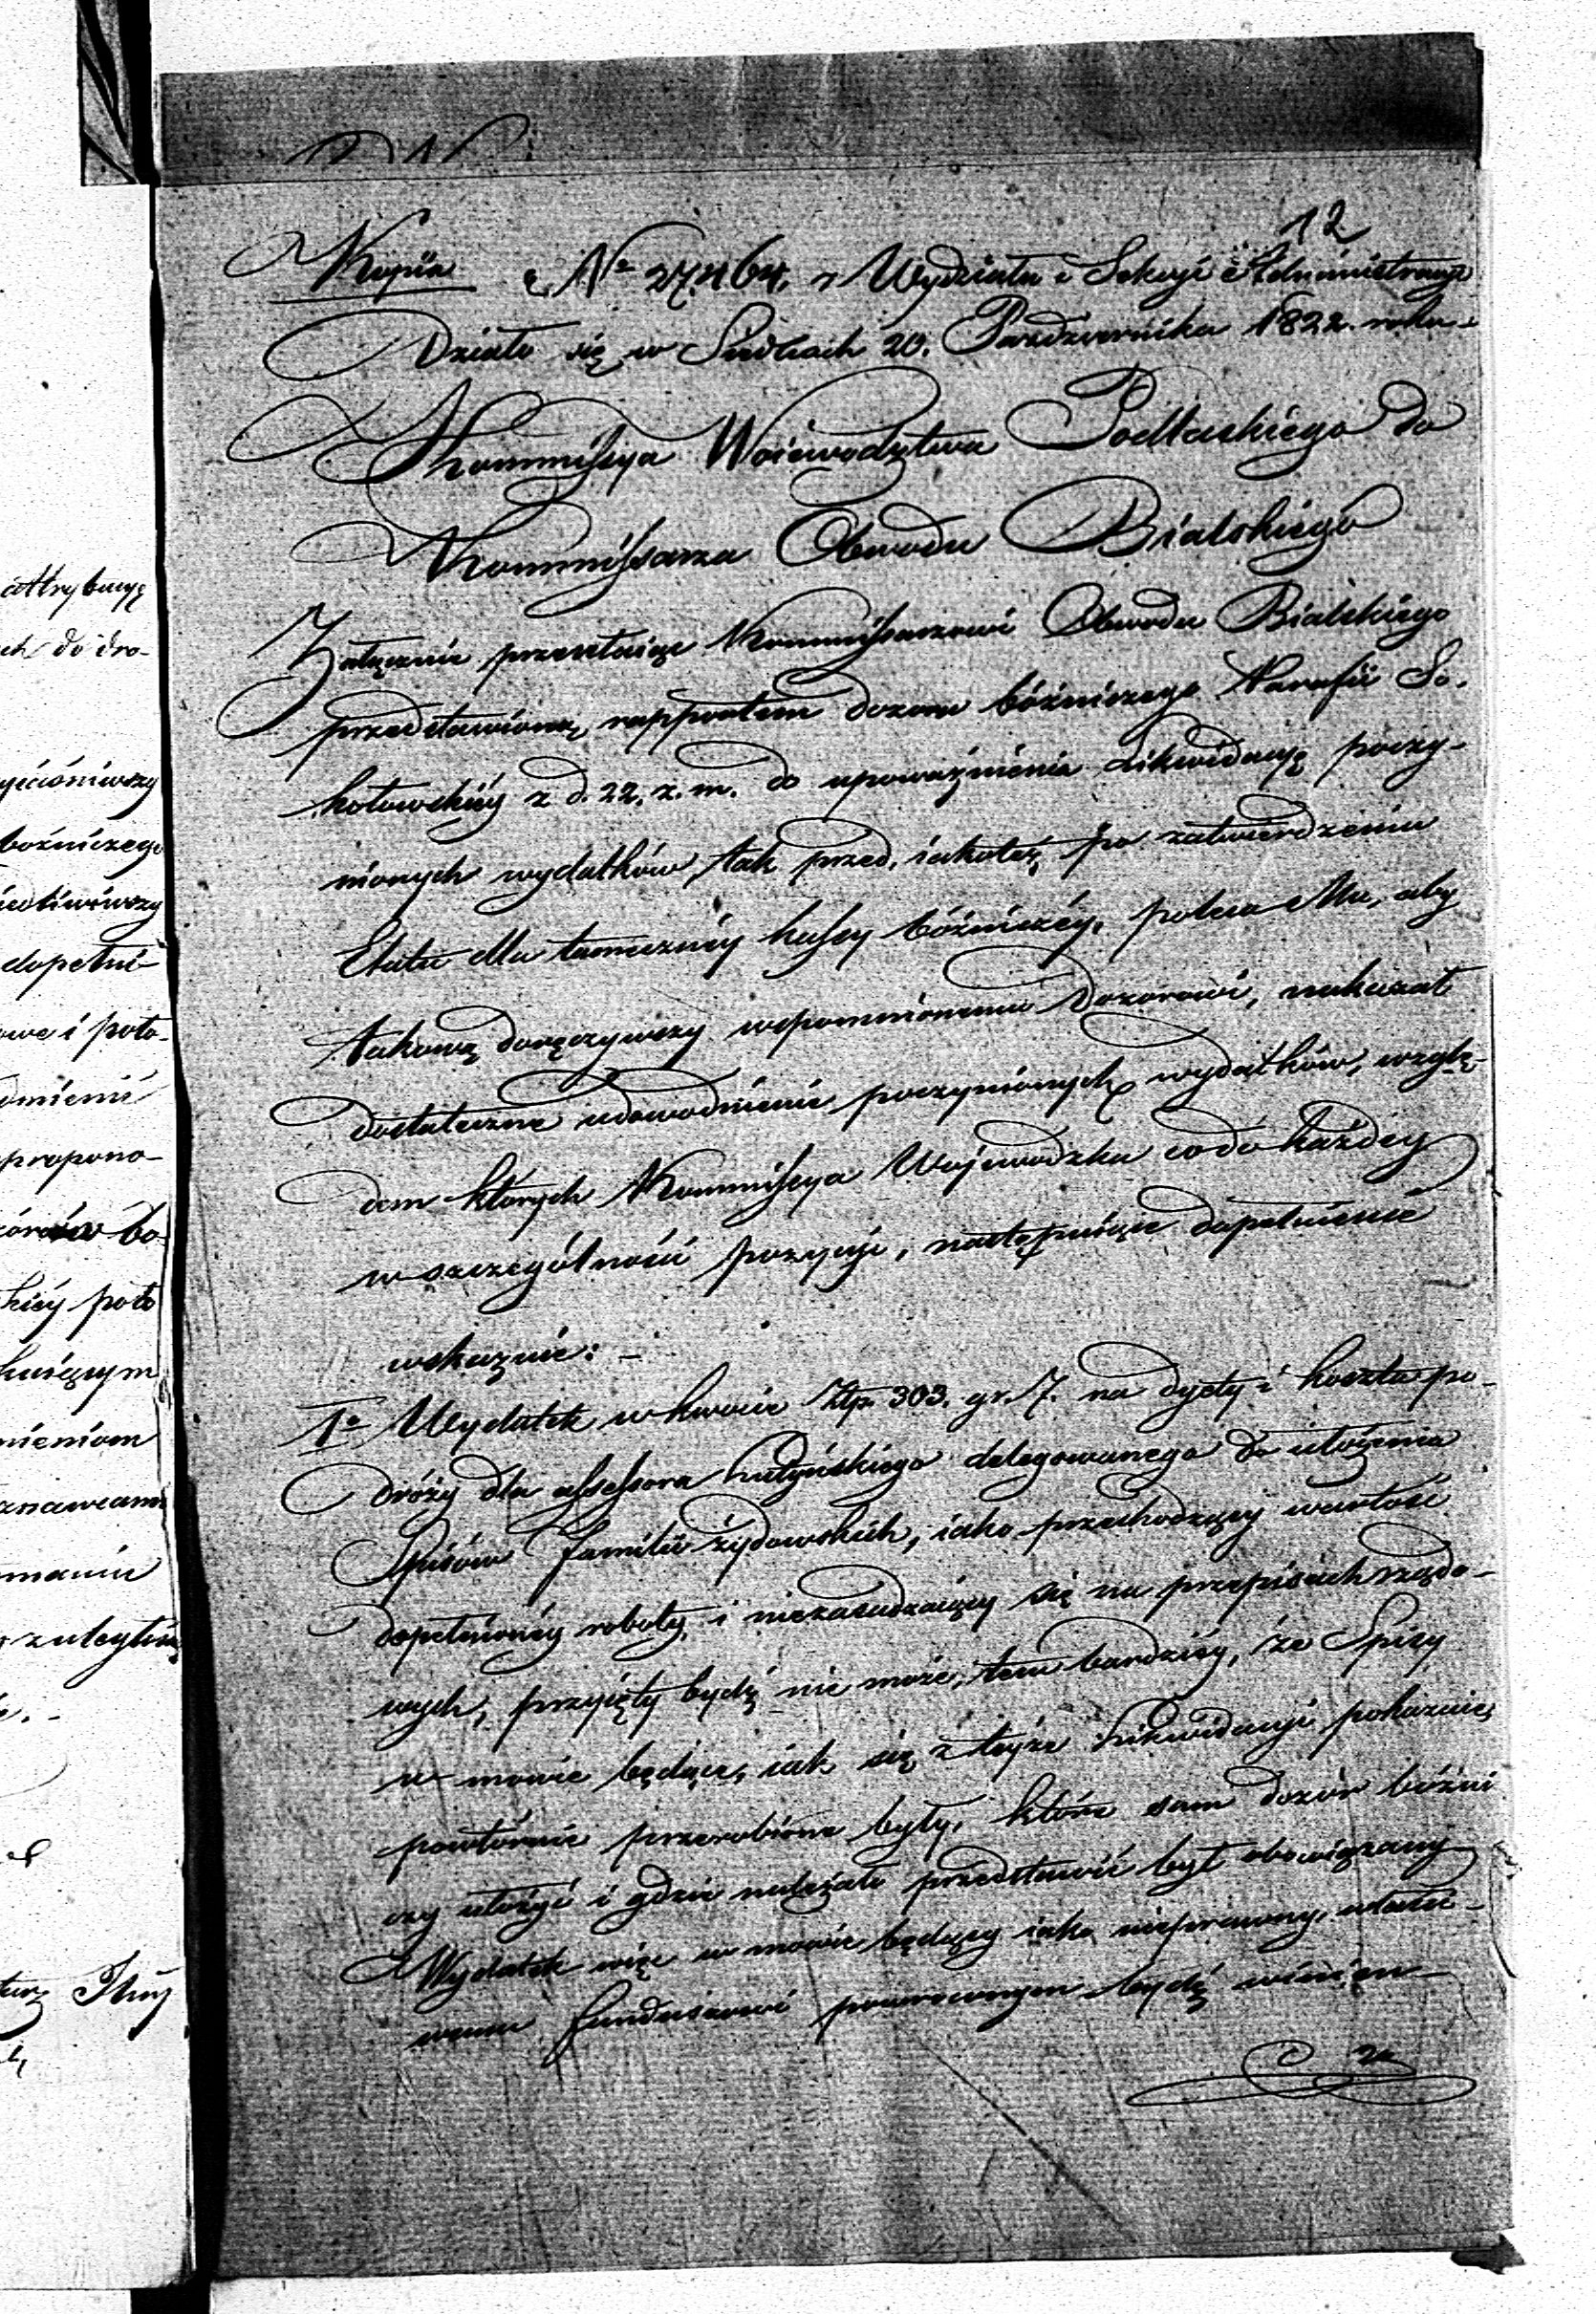 12
Kopia N° 27,464. z Wydziału i Sekcyi Administracyi
Działo się w Siedlcach 20. Pazdziernika 1822. roku
Kommissya Woiewodztwa Podlaskiego do
Kommissarza Obwodu Bialskiego
Załącznie przesyłaiąc Kommissarzowi Obwodu Bialskiego
przedstawioną rapportem dozoru bóżniczego Parafii So-
kołowskiey z d. 22. z. m. do upoważnienia Likwidacyą poczy-
nionych wydatków, tak przed, iakoteż po zatwierdzeniu
Etatu dla tameczney kassy bóżniczéy, poleca Mu, aby
takową doręczywszy wspomnionemu Dozorowi, nakazał
dostateczne udowodnienie poczynionych wydatków, wzglę-
dem których Kommissya Wojewodzka codo każdey
wszczególności pozycyi, następuiące dopełnienie
wskazuie: –
1° Wydatek w kwocie Złp. 303. gr. 7. na dyety i koszta po-
dróży dla assessora delegowanego do ułożenia
Spisów familii żydowskich, iako przechodzący wartość
dopełnionéy roboty, i niezasadzaiący się na przepisach rządo-
wych, przyięty bydź nie może, tem bardziéy, że Spisy
w mowie będące, iak się z teyże Likwidacyi pokazuie,
powtórnie przerobione były, które sam dozór bóżni
czy ułożyć i gdzie należało przedstawić był obowiązany
Wydatek więc w mowie będący iako nieprawny, właści-
wemu funduszowi powroconym bydź winien
2°
attrybucyą
ch do dro-
bożniczego
dopełni-
owe i poło-
propono-
kiey poło
kuiącym
nieniom